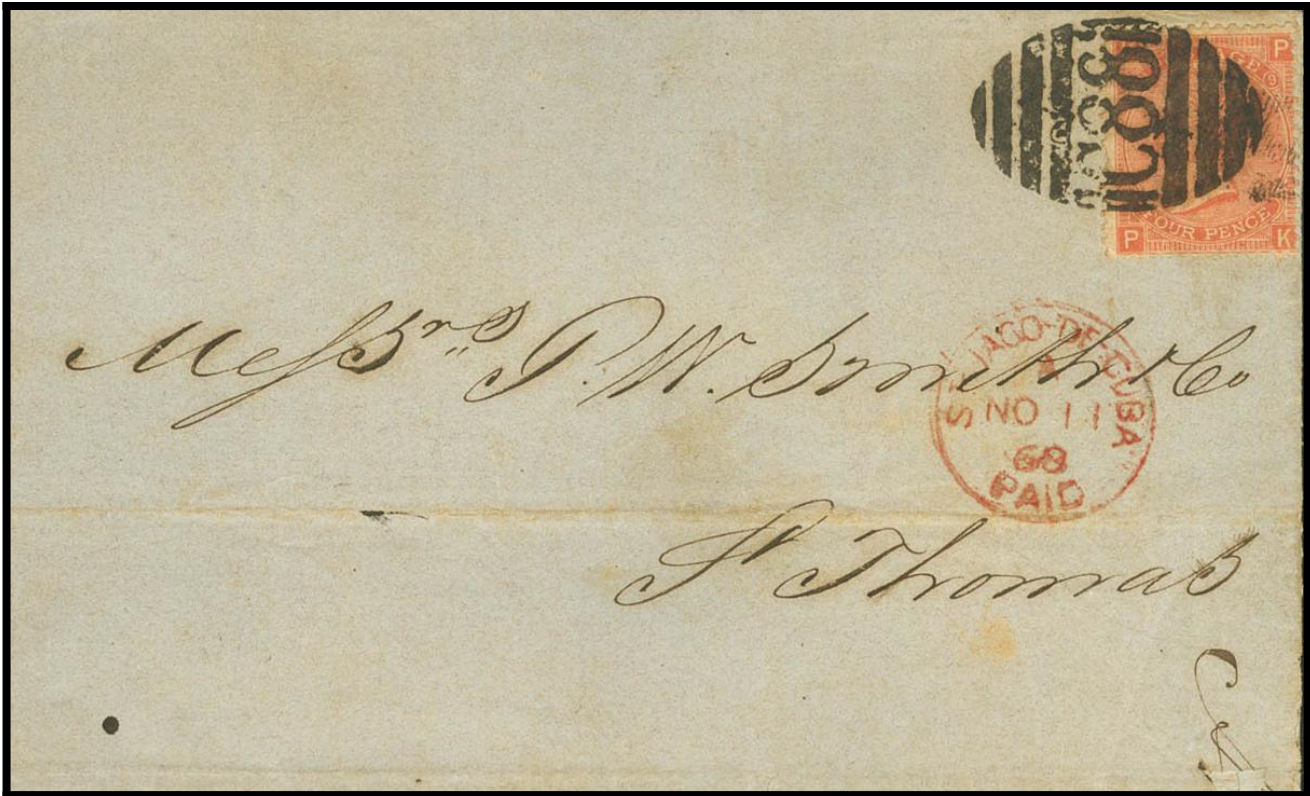 P
9
C88
FOUR PENCE
P K
Messrs. P. W. Smith & Co
ST JAGO-DE-CUBA
A
NO 11
68
PAID
St Thomas